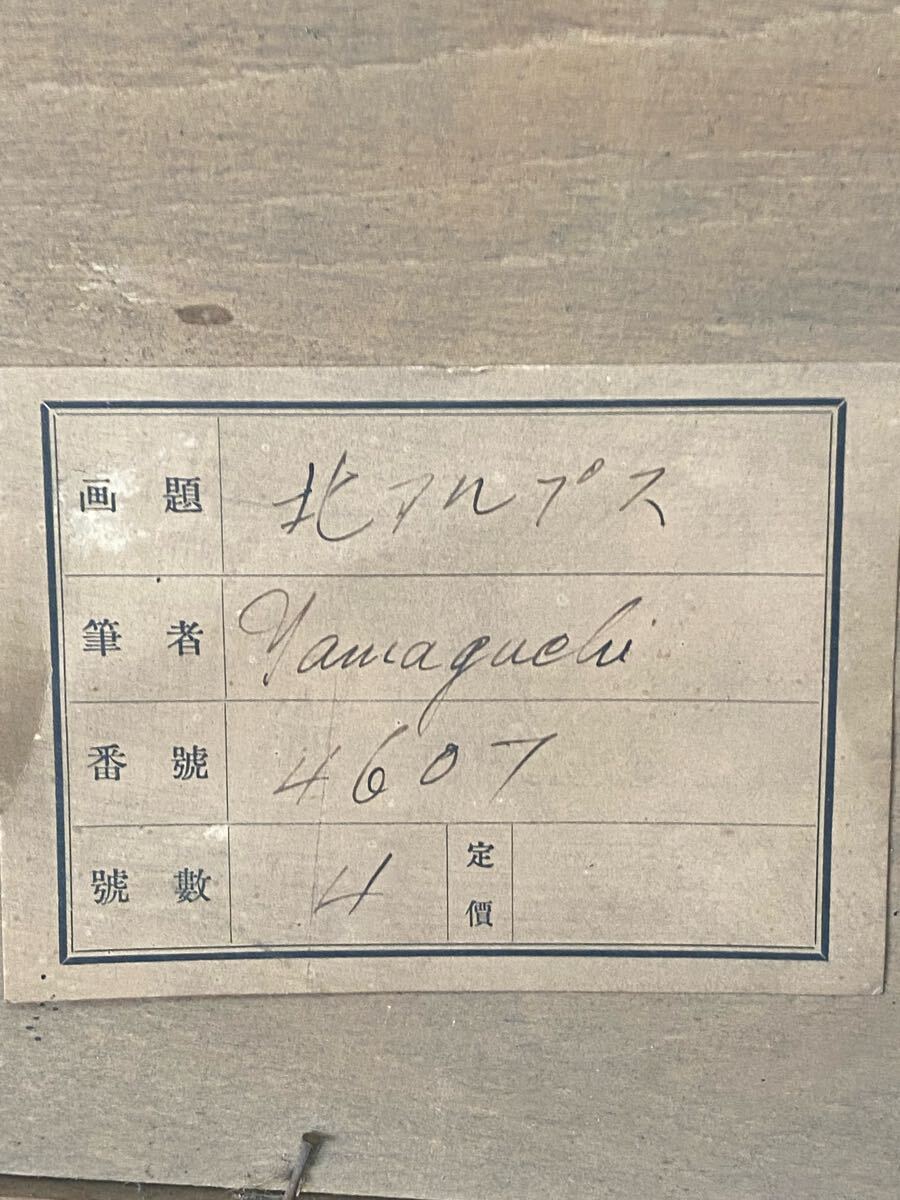 画題 北アルプス
筆者 Yamaguchi
番號 4607
號數 4 定價